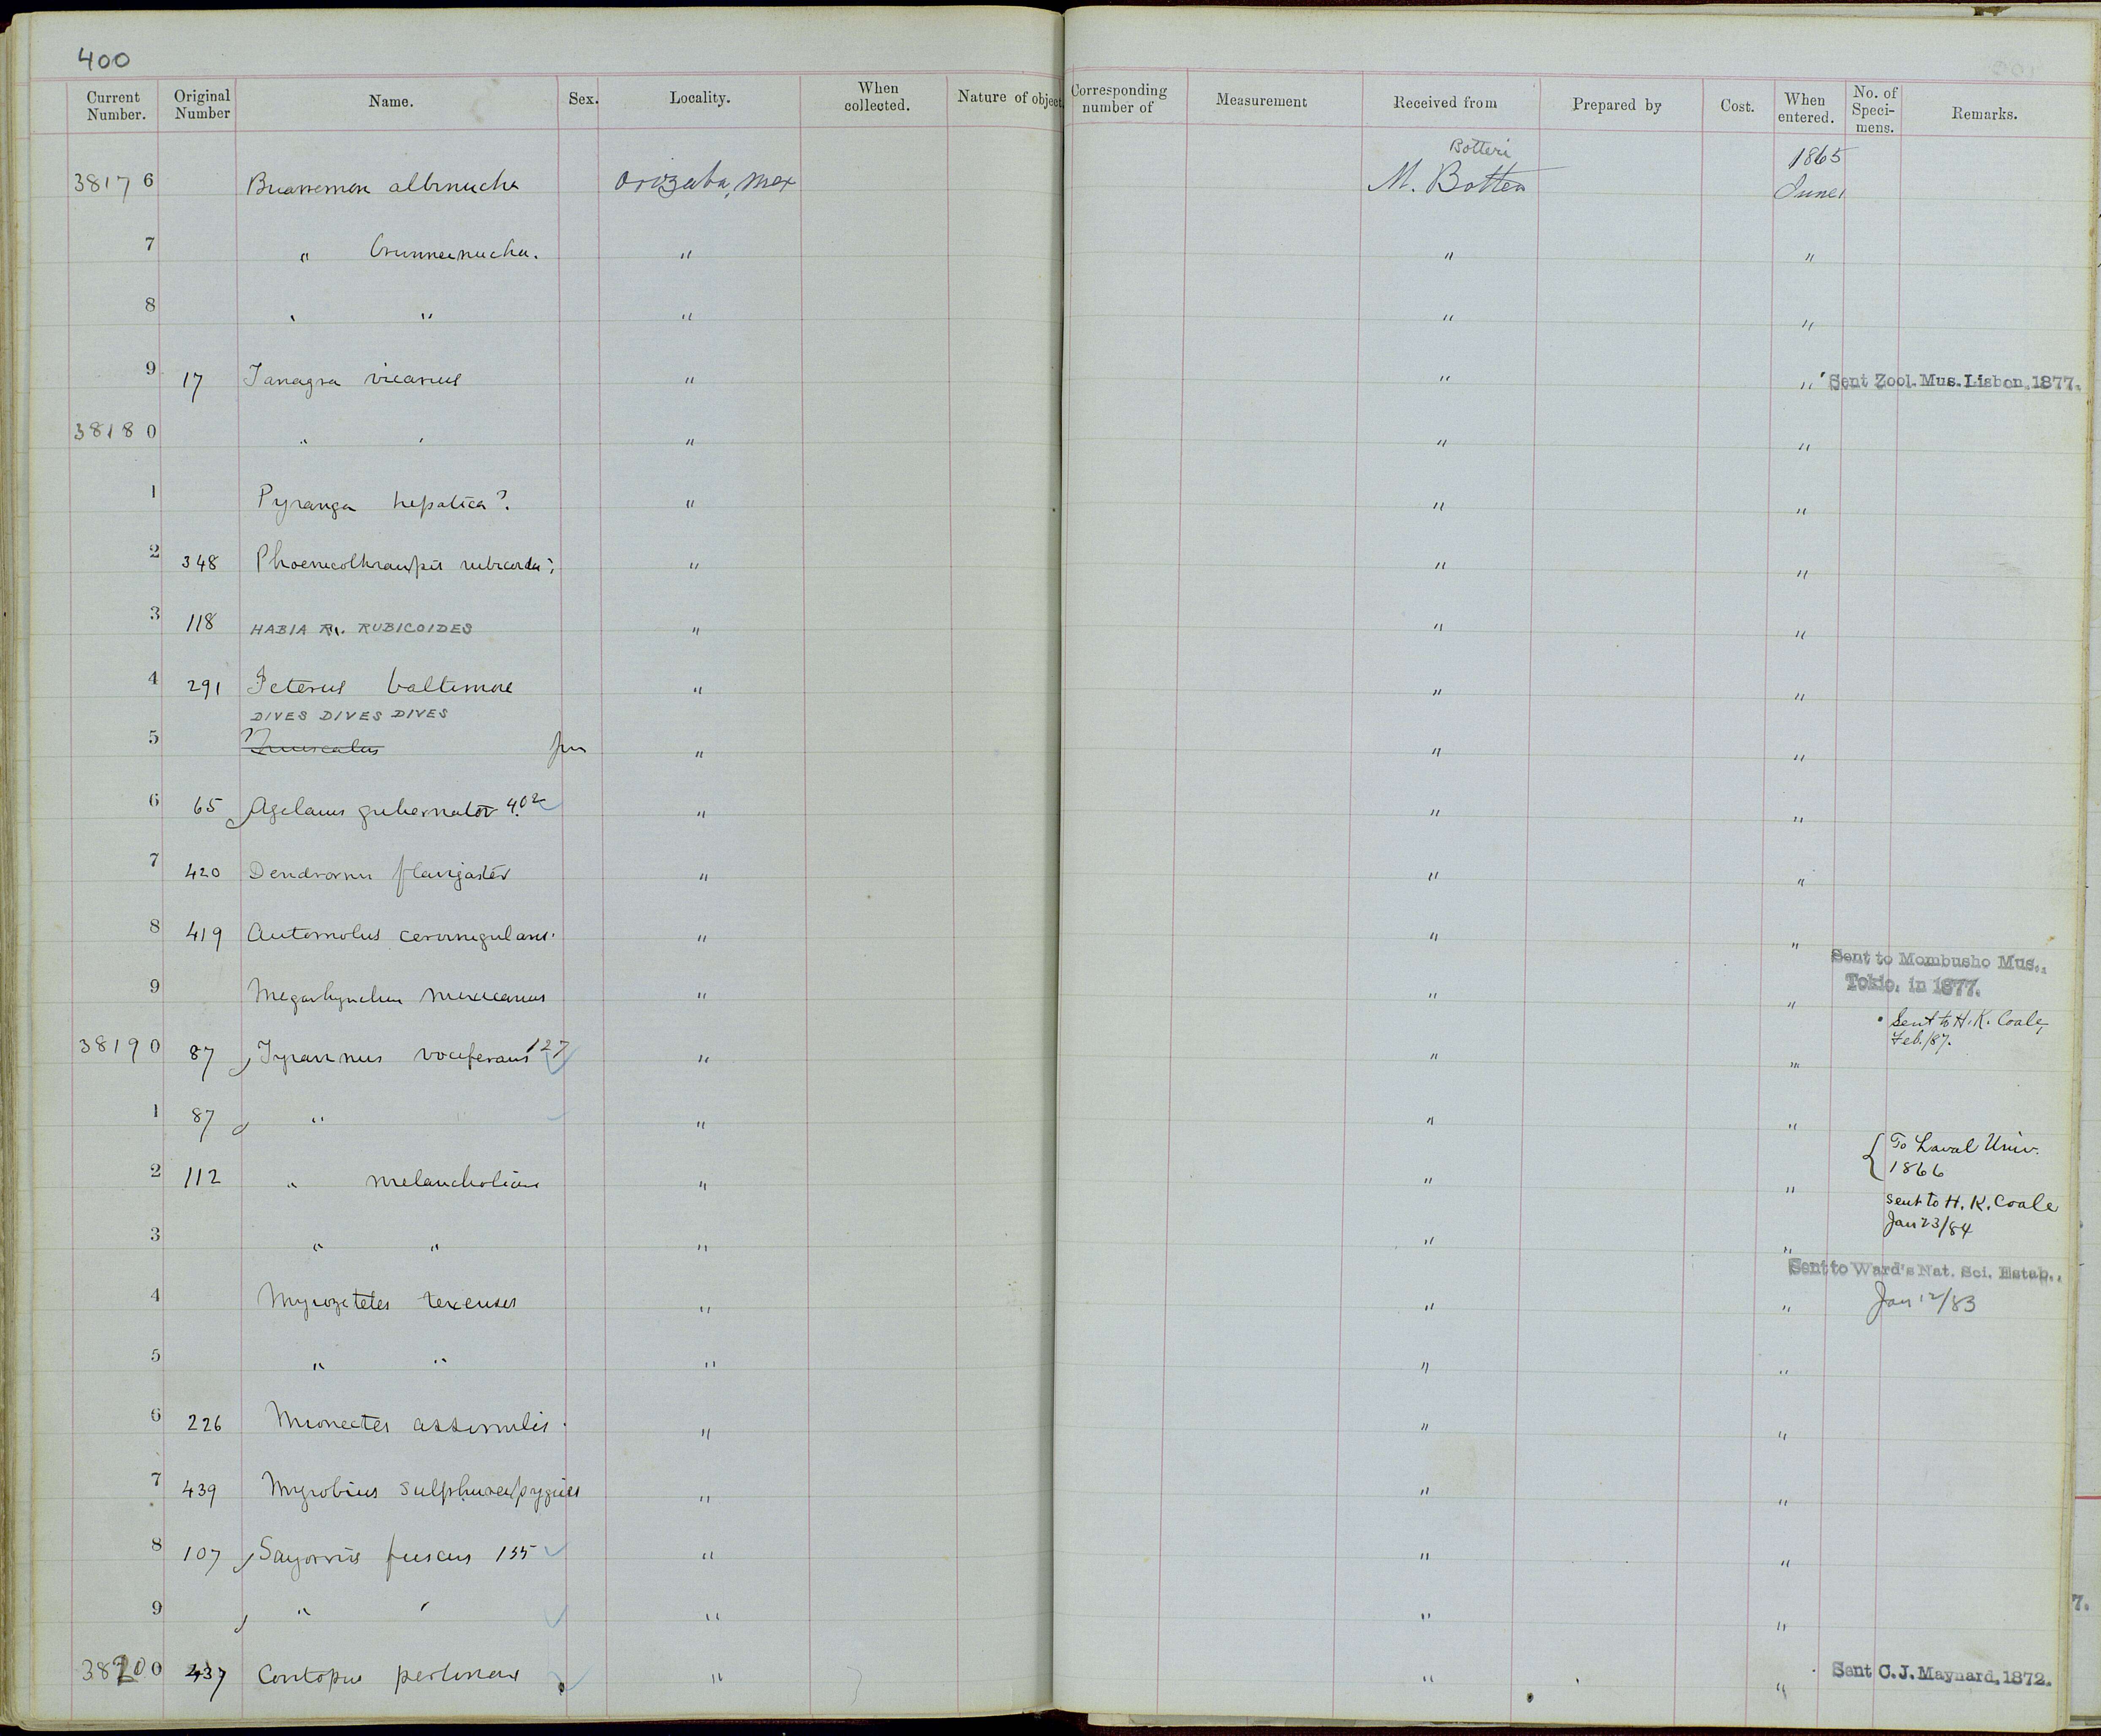 400
Current Number. Original Number Name. Sex. Locality. When collected. Nature of object. Corresponding number of Measurement Received from Prepared by Cost. When entered. No. of Speci-mens. Remarks.
Botteri 1865
38176 Buarremon albinucha Orizaba, Mex M. Botteri June
7 " brunneinucha. " " "
8 " " " " "
9 17 Tanagra vicarius " " " Sent Zool. Mus. Lisbon, 1877.
38180 " " " " "
1 Pyranga hepatica? " " "
2 348 Phoenicothraupis " " "
3 118 HABIA R. RUBICOIDES " " "
4 291 Icterus baltimore " " "
DIVES DIVES DIVES
5 Quiscalus " " "
6 65 Agelaius gubernator 402 " " "
7 420 Dendrornis flavigaster " " "
8 419 Automolus cervinigularis. " " "
Sent to Mombusho Mus.,
Tokio. in 1877.
9 Megarhynchus mexicanus " " "
Sent to H. K. Coale,
Feb./87.
38190 87 Tyrannus vociferans 127 " " "
1 87 " " " "
{ To Laval Univ.
1866
2 112 " melancholicus " " "
sent to H. K. Coale
Jan 23/84
3 " " " " "
Sent to Ward's Nat. Sci. Estab.,
4 Myiozetetes texensis " " " Jan 12/83
5 " " " " "
6 226 Mionectes assimilis. " " "
7 439 Myiobius sulphureipygius " " "
8 107 Sayornis fuscus 135 " " "
9 " " " " "
38200 437 Contopus pertinax " " " Sent C. J. Maynard, 1872.
7.